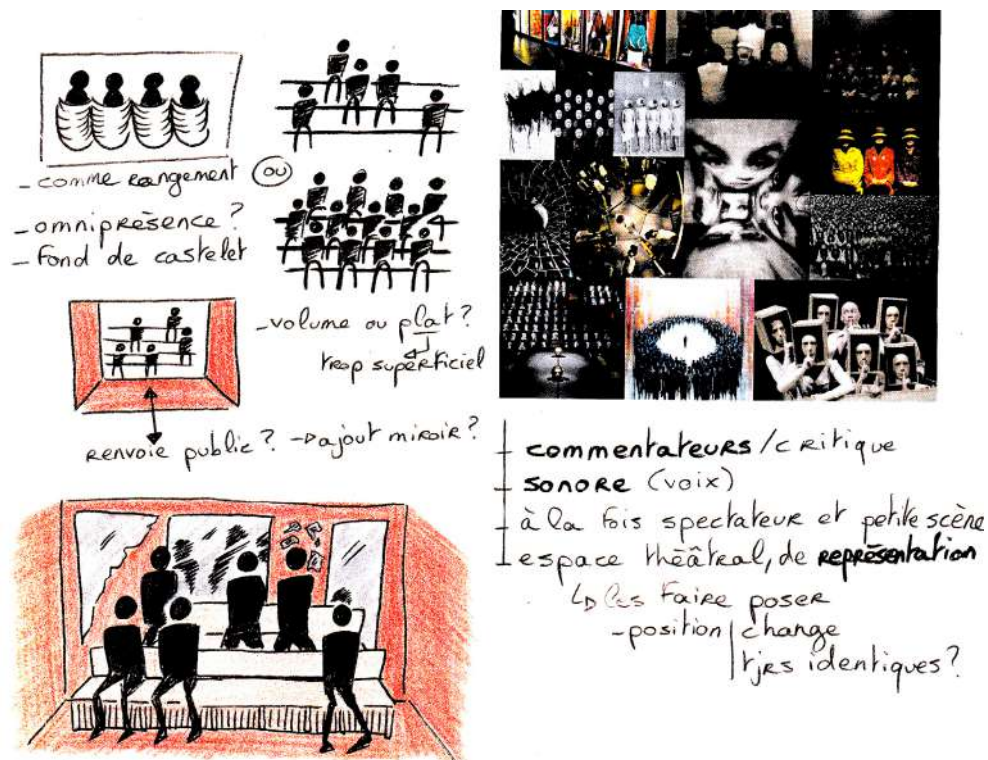 - comme rangement
OU
- omniprésence ?
- fond de castelet
- volume ou plat ?
trop superficiel
renvoie public ? -> ajout miroir ?
commentateurs / critique
sonore (voix)
à la fois spectateur et petite scène
espace théâtral, de représentation
↳ les faire poser
- position | change
tjrs identiques ?